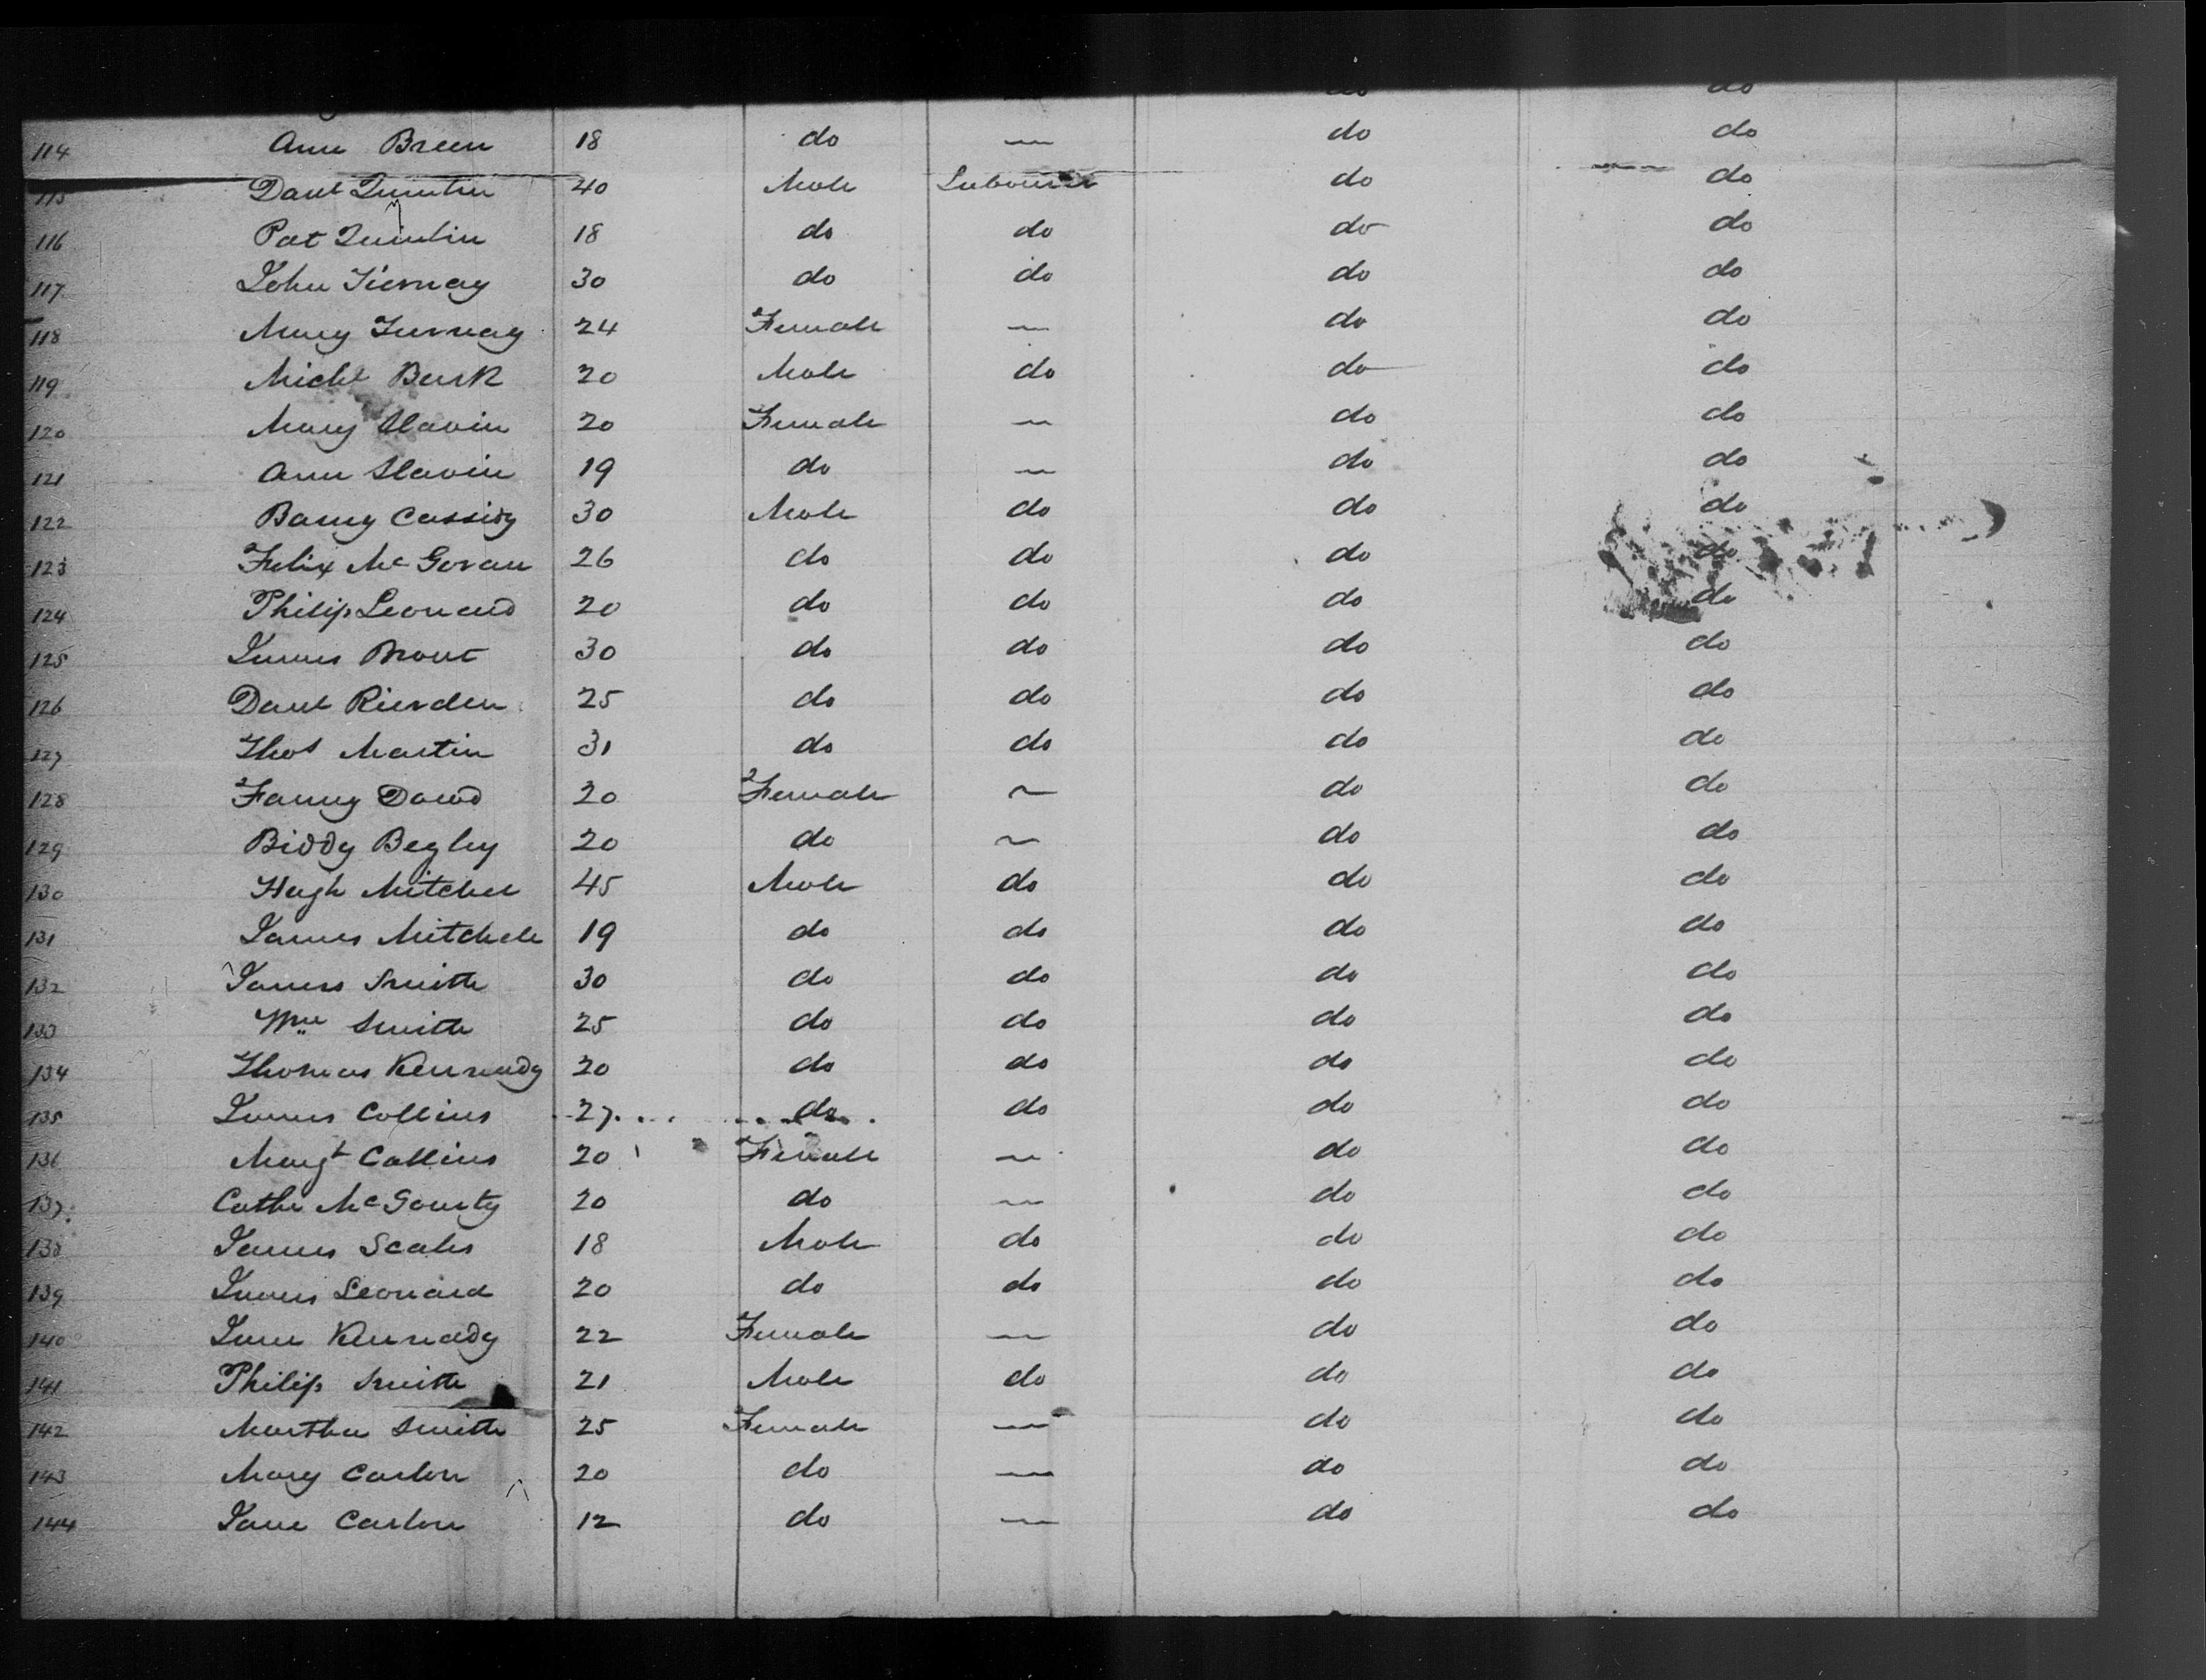 do do
114 Ann Breen 18 do — do do
115 Danl Quinlin 40 Male Labourer do do
116 Pat Quinlin 18 do do do do
117 John Tiernay 30 do do do do
118 Mary Tiernay 24 Female — do do
119 Michl Burk 20 Male do do do
120 Mary Slavin 20 Female — do do
121 Ann Slavin 19 do — do do
122 Barny Cassidy 30 Male do do do
123 Felix McGovan 26 do do do do
124 Philip Leonard 20 do do do do
125 James Brout 30 do do do do
126 Danl Rierden 25 do do do do
127 Thos Martin 31 do do do do
128 Fanny Dowd 20 Female — do do
129 Biddy Begley 20 do — do do
130 Hugh Mitchel 45 Male do do do
131 James Mitchele 19 do do do do
132 James Smith 30 do do do do
133 Wm Smith 25 do do do do
134 Thomas Kennedy 20 do do do do
135 James Collins 27 do do do do
136 Margt Collins 20 Female — do do
137 Cathe McGourty 20 do — do do
138 James Scales 18 Male do do do
139 James Leonard 20 do do do do
140 Jane Kennady 22 Female — do do
141 Philip Smith 21 Male do do do
142 Martha Smith 25 Female — do do
143 Mary Carlon 20 do — do do
144 Jane Carlon 12 do — do do